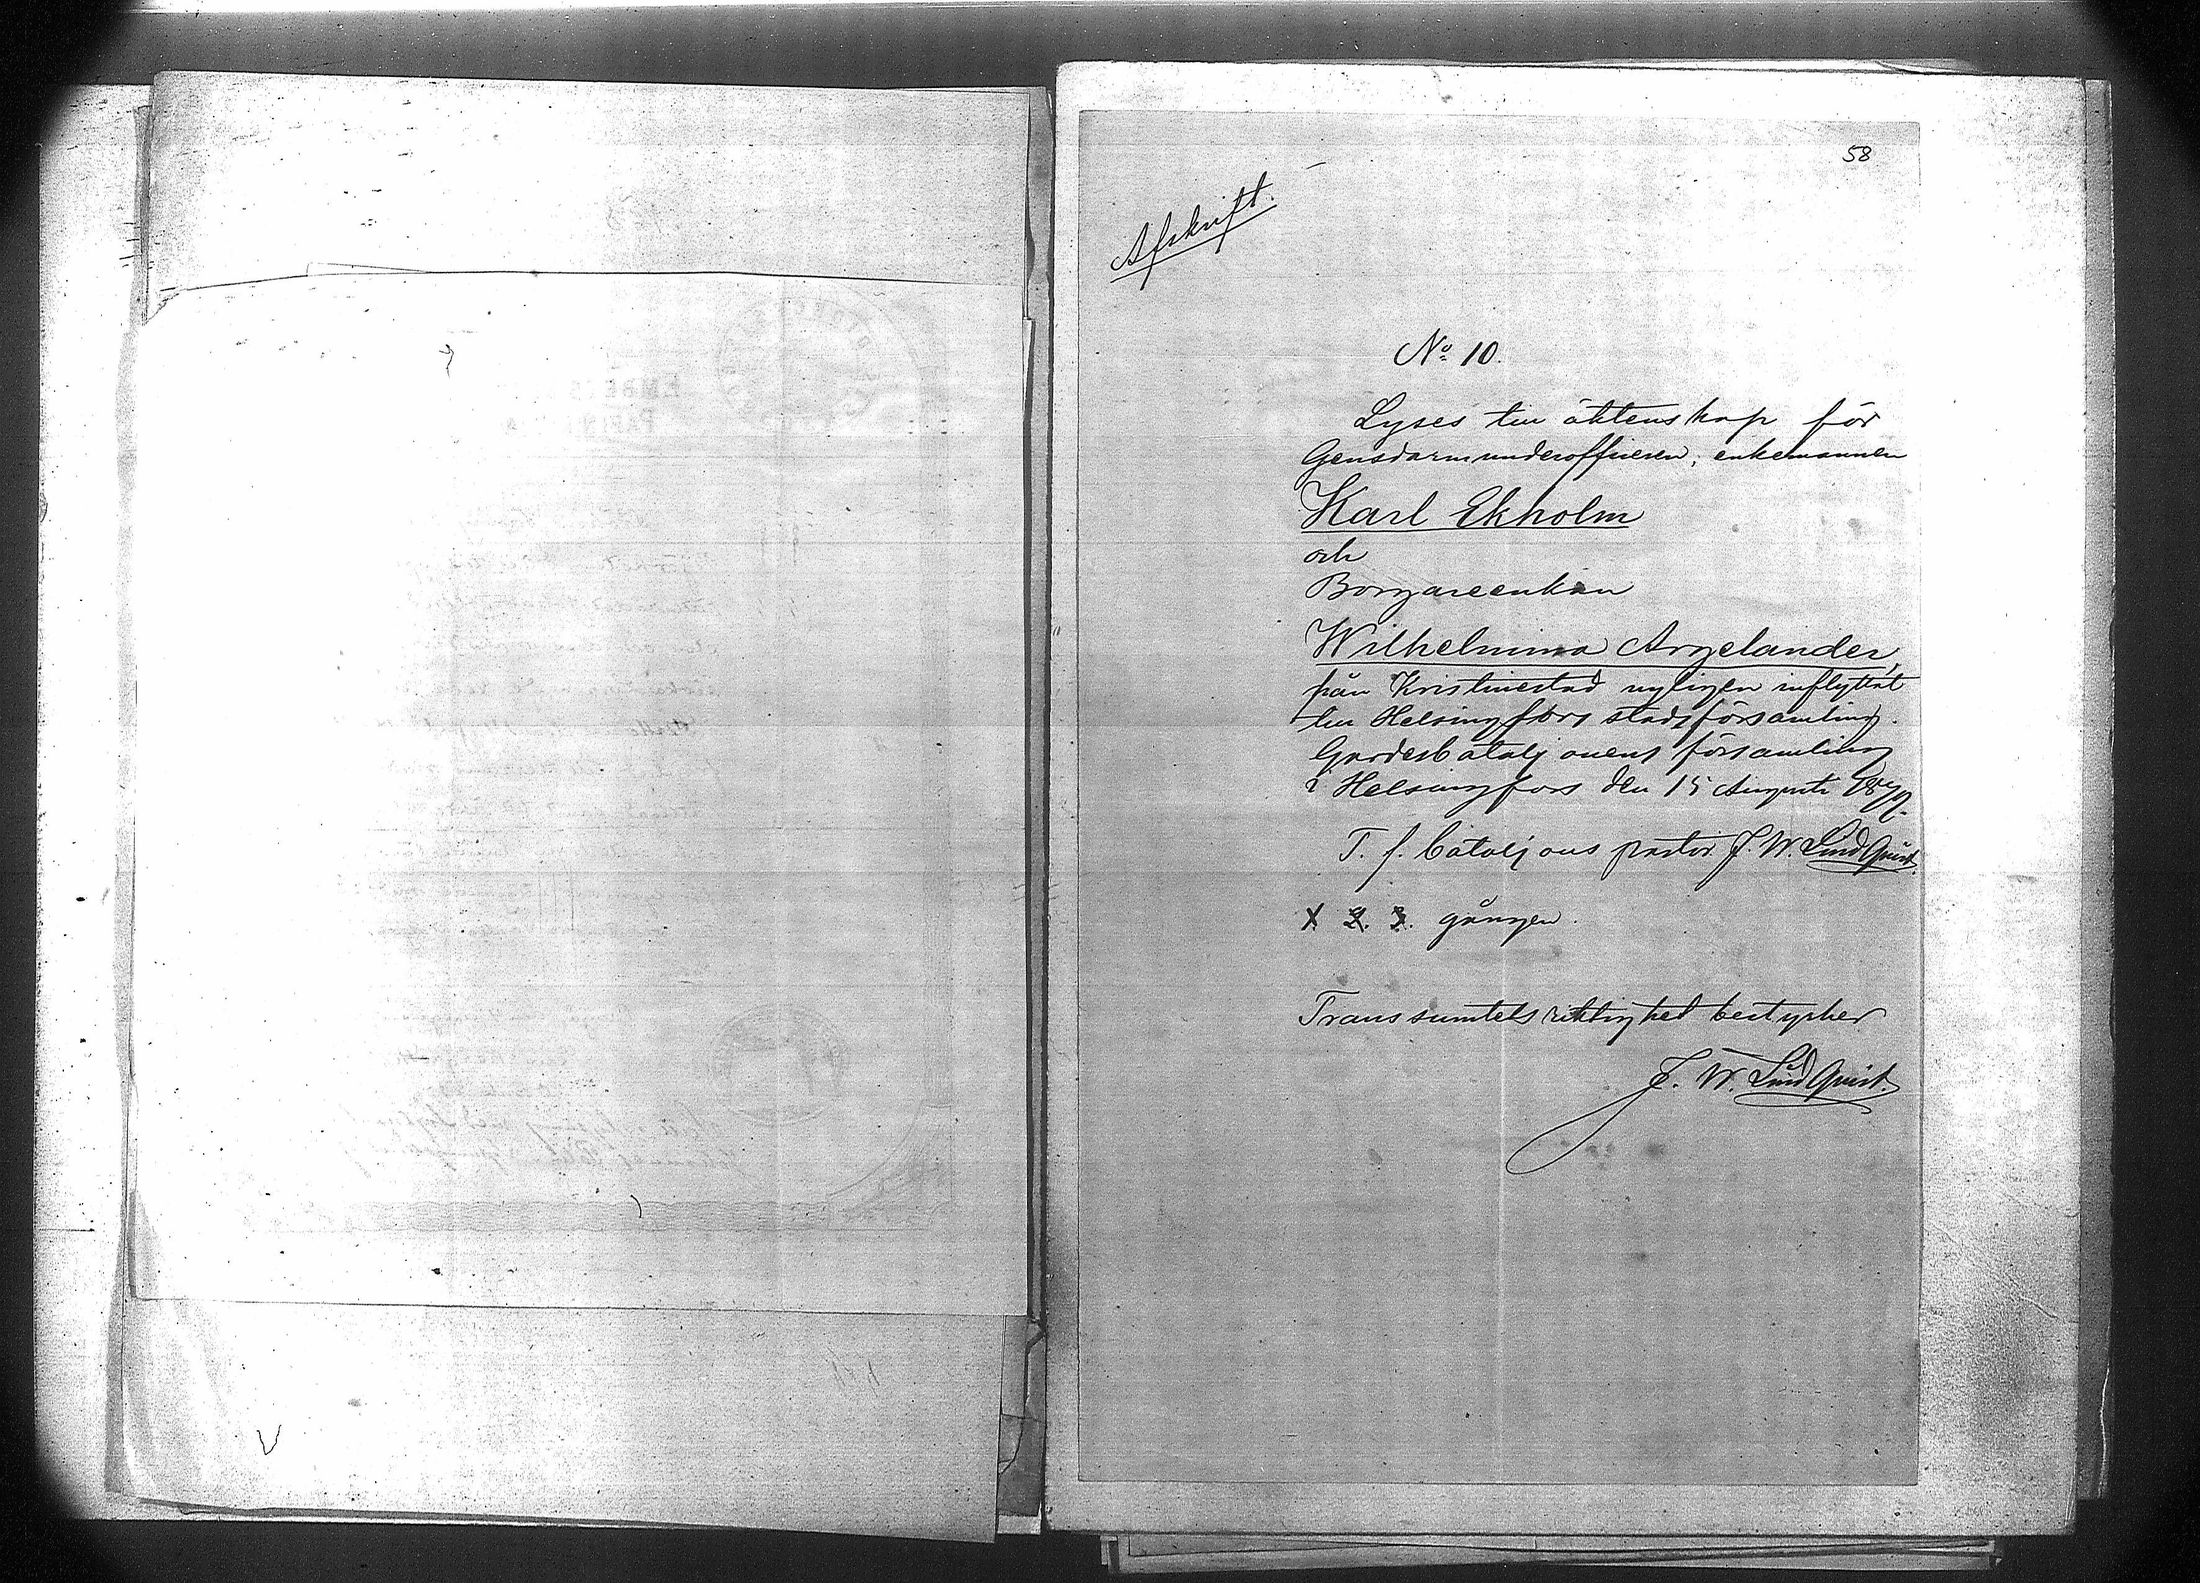 58
Afskrift.
No 10.
Lyses till äktenskap för
Gensdarmunderofficeren, enkemannen
Karl Ekholm
och
Borgareenkan
Wilhelmina Argelander,
från Kristinestad nyligen inflyttat
till Helsingfors stadsförsamling.
Gardesbataljonens församling
i Helsingfors den 15 Augusti
T. f. bataljons pastor J. W. LindQvist.
1. 2. 3. gången.
Transsumtets riktighet bestyrker
J. W. LindQvist.